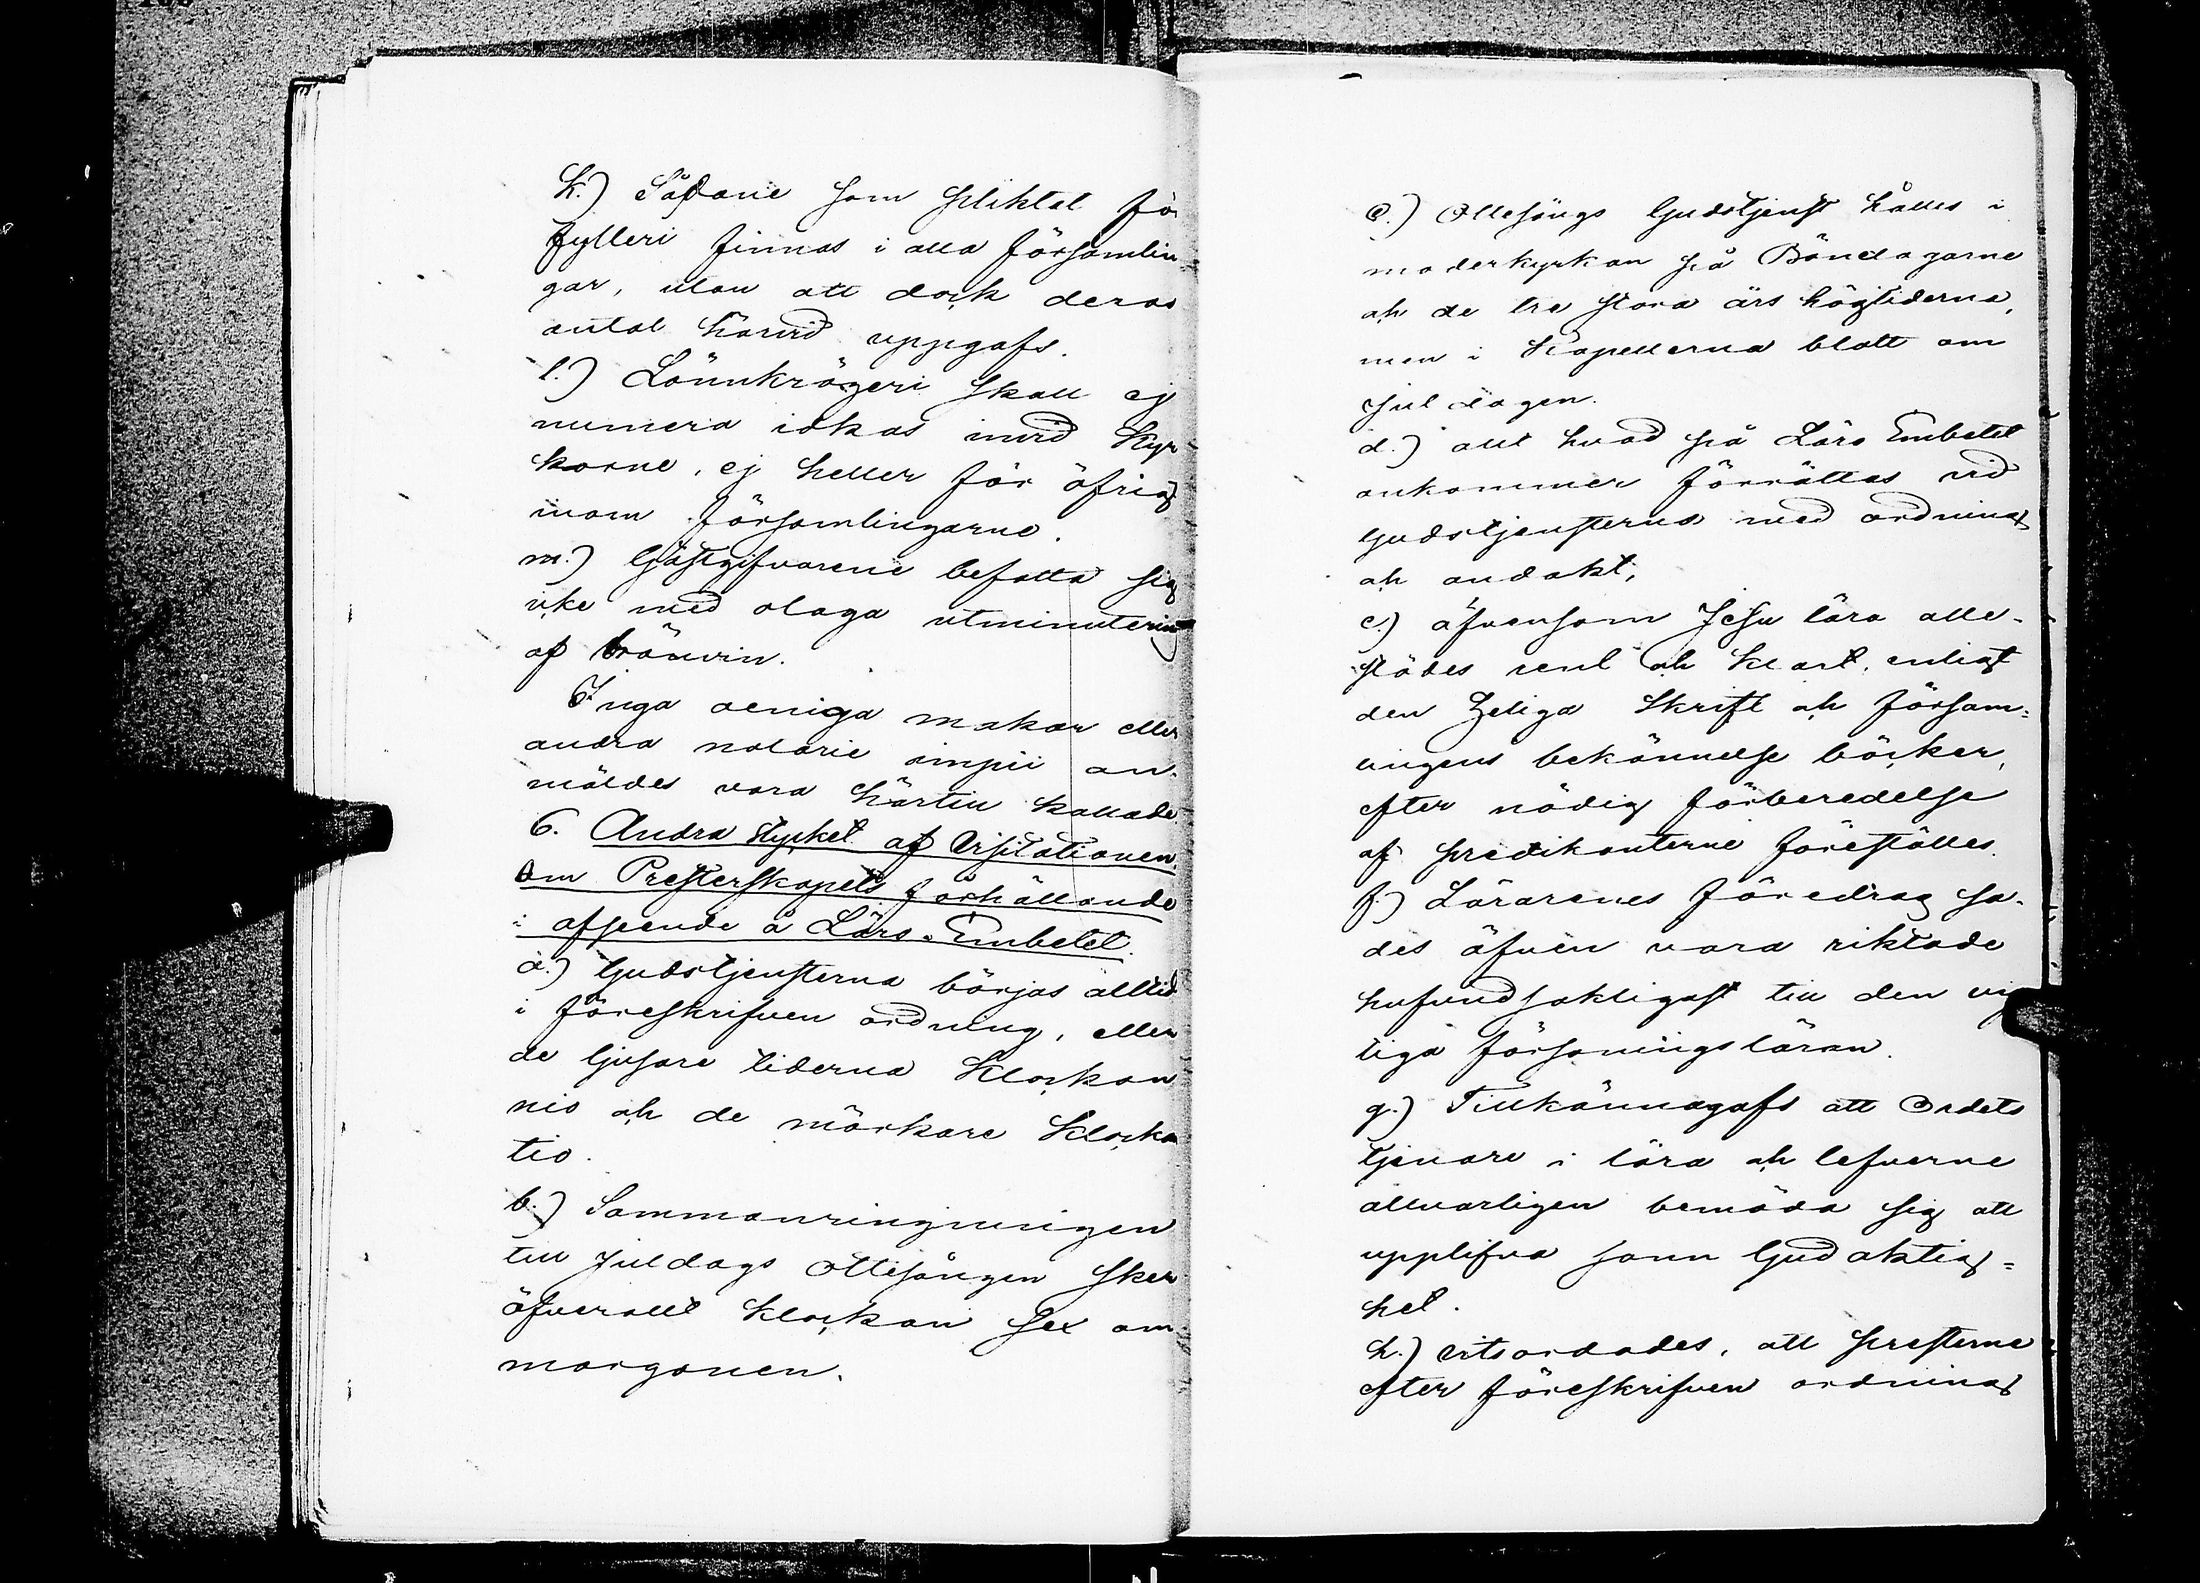 k.) Sådane som pliktat för
fylleri finnas i alla församlin=
gar, utan att dock deras
antal härvid uppgafs.
l.) Lönnkrögeri skall ej
numera idkas invid Kyr=
korne, ej heller för öfrigt
inom församlingarne.
m.) Gästgifvarene befatta sig
icke med olaga utminutering
af bränvin.
Inga oeniga makar eller
andra notorie impii an=
mäldes vara härtill kallade.
6. Andra stycket af Visitationen
om Presterskapets förhållande
i afseende å Läro-Embetet.
a.) Gudstjensterna börjas alltid
i föreskrifven ordning, eller
de ljusare tiderna Klockan
nio och de mörkare Klockan
tio.
b.) Sammanringningen
till Juldags Ottesången sker
öfverallt klockan sex om
morgonen.
c.) Ottesångs Gudstjenst hålles i
moderkyrkan på Böndagarne
och de tre stora års högtiderna,
men i Kapellerna blott om
Juldagen.
d.) allt hvad på Läro Embetet
ankommer förrättas vid
Gudstjensterna med ordning
och andakt,
e.) äfvensom Jesu lära alle-
städes rent och klart, enligt
den Heliga Skrift och försam=
lingens bekännelse böcker,
efter nödig förberedelse
af predikanterne föreställes.
f.) Lärarenes föredrag sa-
des äfven vara riktade
hufvudsakligast till den vig
tiga försoningsläran.
g.) Tillkännagafs att Ordets
tjenare i lära och lefverne
allvarligen bemöda sig att
upplifva sann Gudaktig=
het.
h.) vitsordades, att presterne
efter föreskrifven ordning